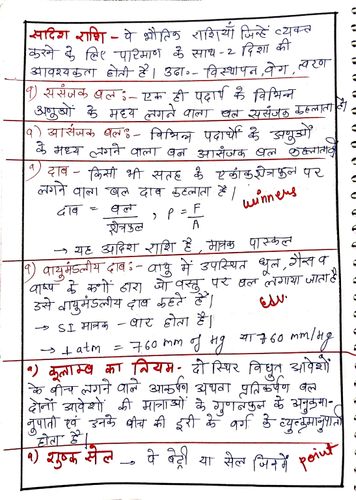 सदिश राशि - वे भौतिक राशियाँ जिन्हें व्यक्त
करने के लिए परिमाण के साथ-2 दिशा की
आवश्यकता होती है। उदा०:- विस्थापन, वेग, त्वरण
१) ससंजक बल:- एक ही पदार्थ के विभिन्न
अणुओं के मध्य लगने वाला बल ससंजक कहलाता है।
१) आसंजक बल:- विभिन्न पदार्थों के अणुओं
के मध्य लगने वाला बल आसंजक बल कहलाता है
१) दाब - किसी भी सतह के एकांक क्षेत्रफल पर
लगने वाला बल दाब कहलाता है।
winners
दाब = बल / क्षेत्रफल , P = F / A
→ यह अदिश राशि है, मात्रक पास्कल
१) वायुमंडलीय दाब:- वायु में उपस्थित धूल, गैस व
वाष्प के कणों द्वारा जो वस्तु पर बल लगाया जाता है
उसे वायुमंडलीय दाब कहते हैं।
Edu.
→ SI मात्रक - बार होता है।
→ 1 atm = 760 mm of Hg या 760 mm/Hg
१) कूलाम्ब का नियम - दो स्थिर विद्युत आवेशों
के बीच लगने वाले आकर्षण अथवा प्रतिकर्षण बल
दोनों आवेशों की मात्राओं के गुणनफल के अनुक्रमा-
नुपाती एवं उनके बीच की दूरी के वर्ग के व्युत्क्रमानुपाती
होता है।
१) शुष्क सेल → वे बेट्री या सेल जिनमें
point